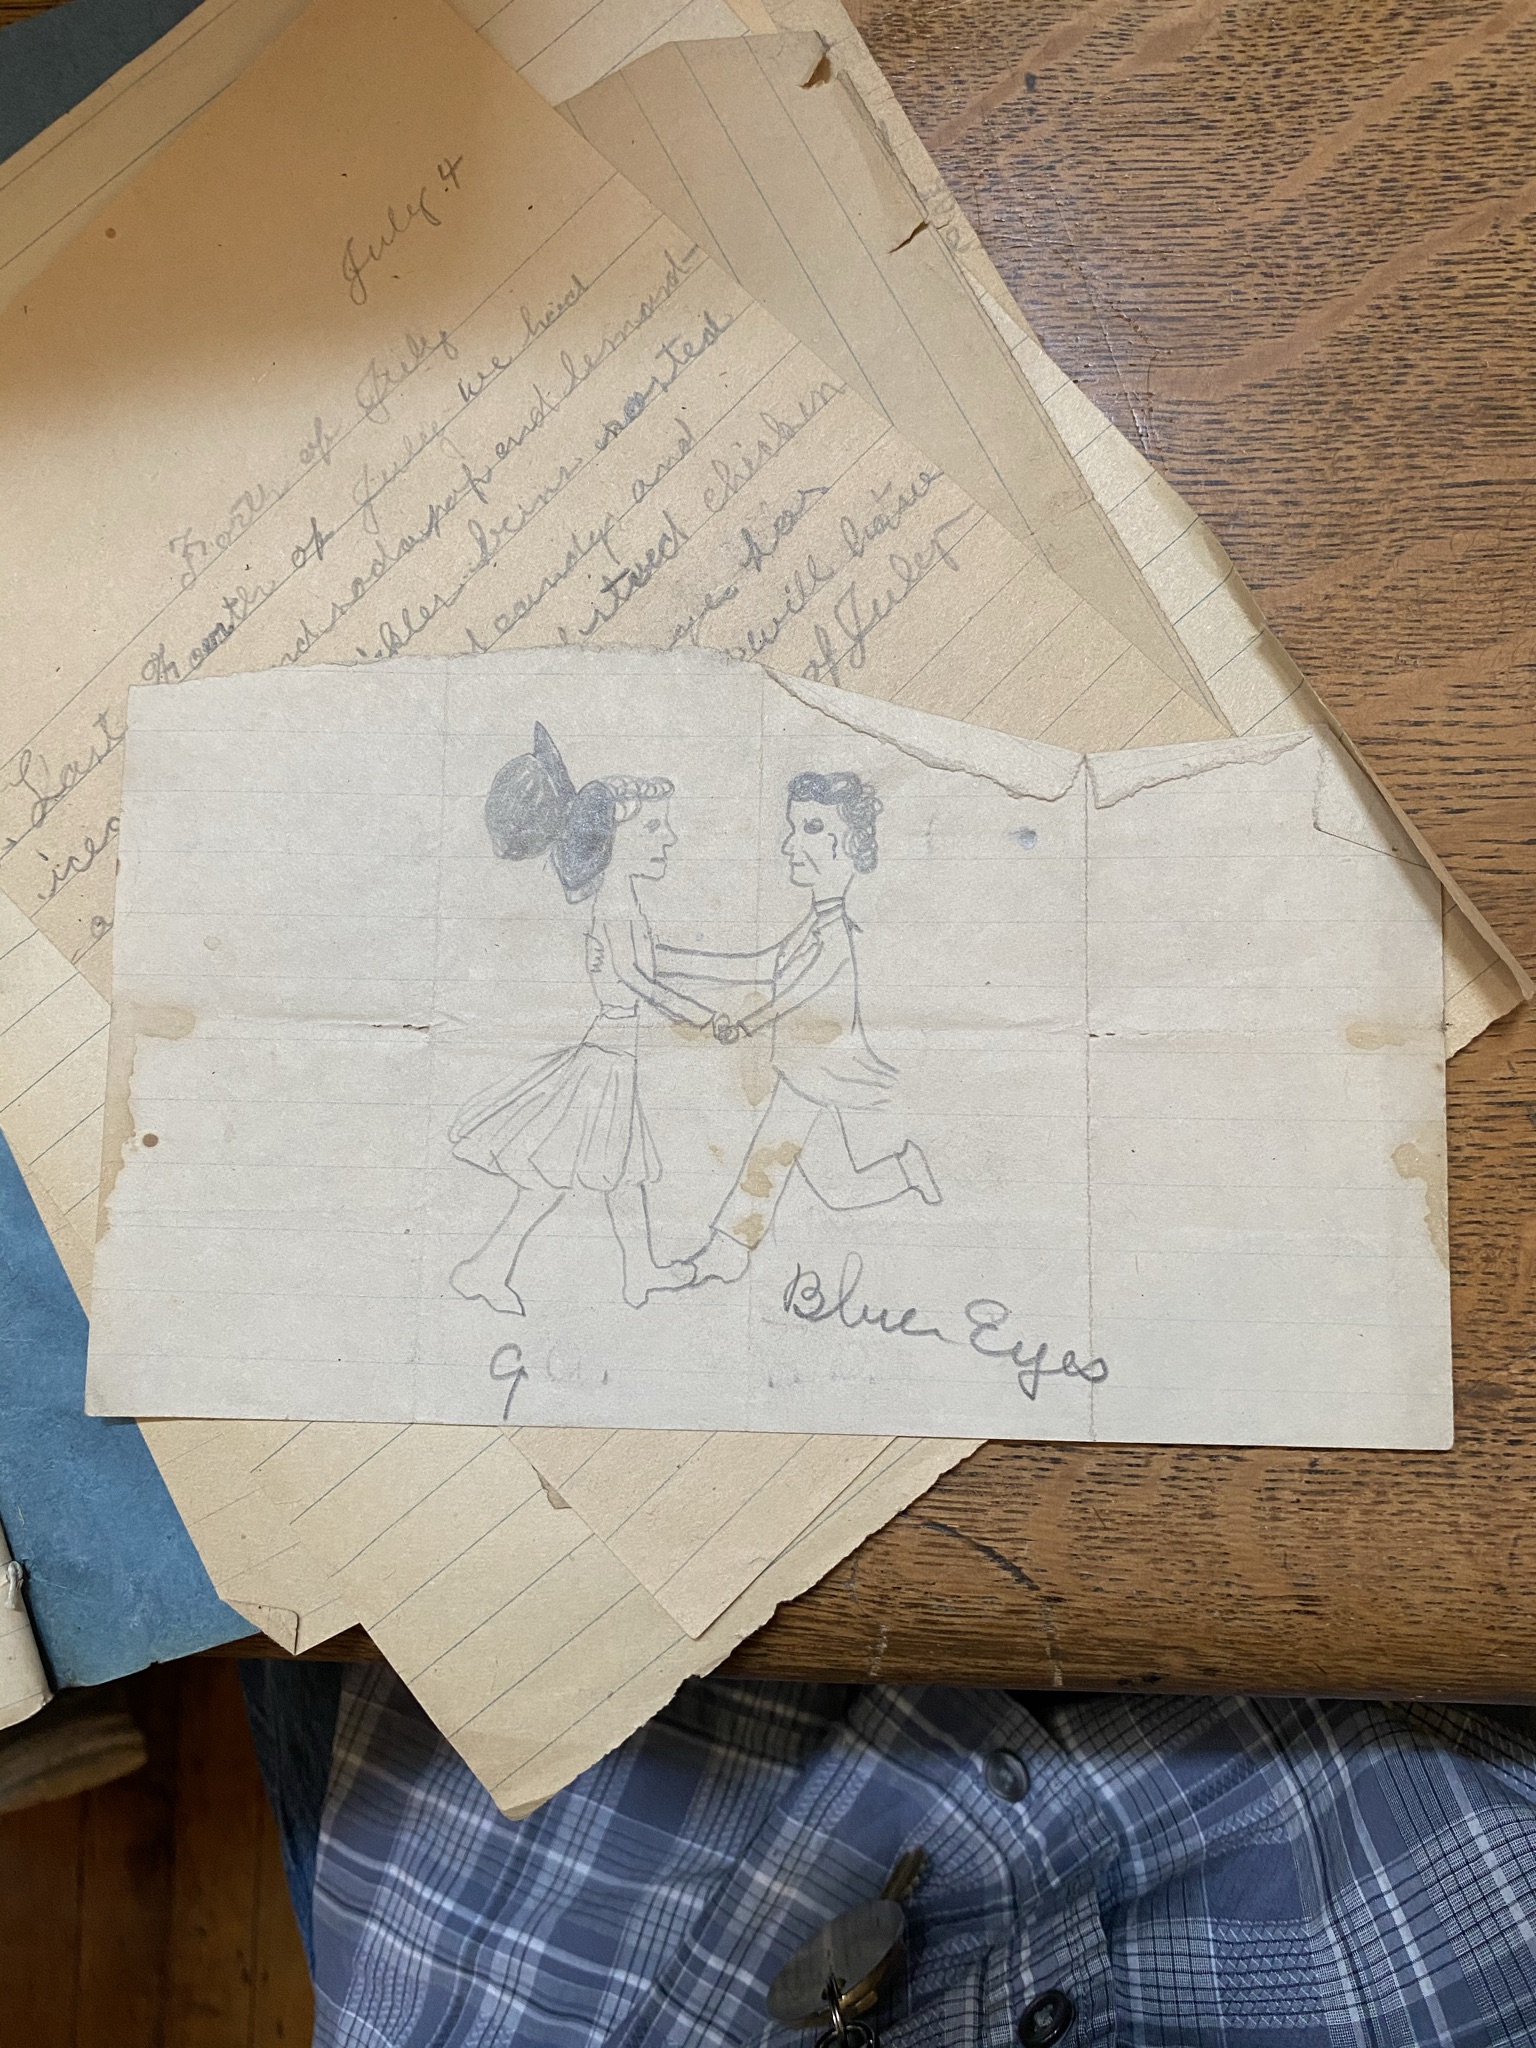 July 4
Forth of July
Last Fourth of July we had
icec nd soda pop and lemonad-
a ickles beins roasted
d candy and
stued chicken
has
will have
of July
Blue Eyes
9